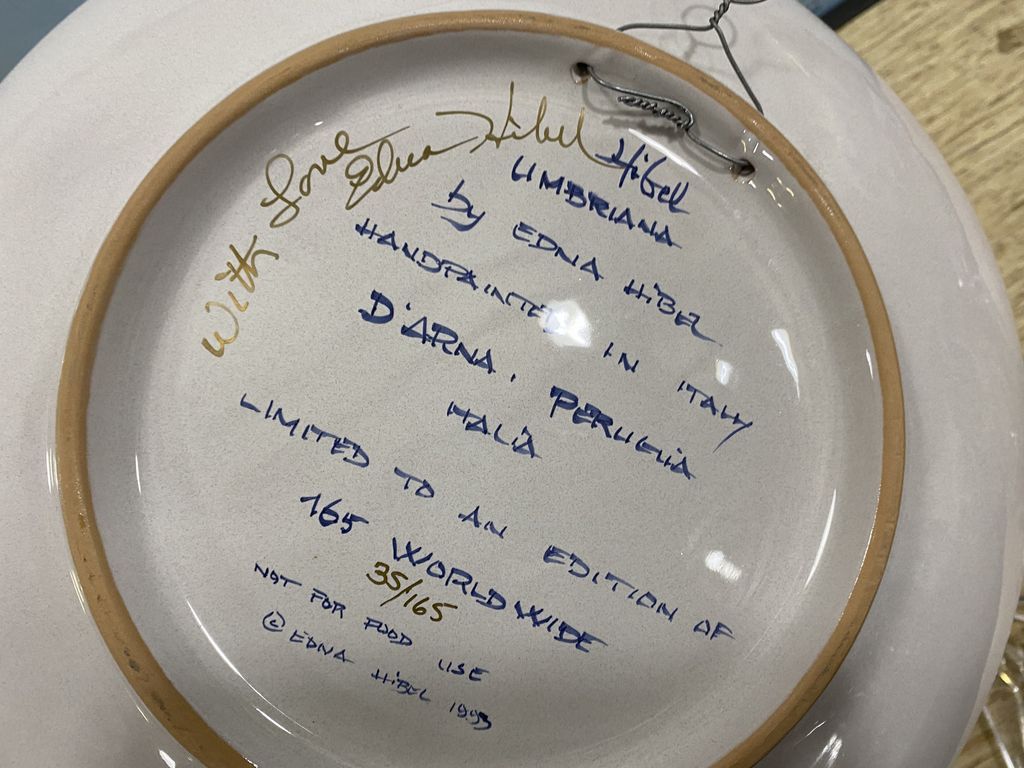 With Love Edna Hibel
Hibel
UMBRIANA
by EDNA HIBEL
HANDPAINTED IN ITALY
D'ARNA, PERUGIA
ITALIA
LIMITED TO AN EDITION OF
165 WORLDWIDE
35/165
NOT FOR FOOD USE
© EDNA HIBEL 1993